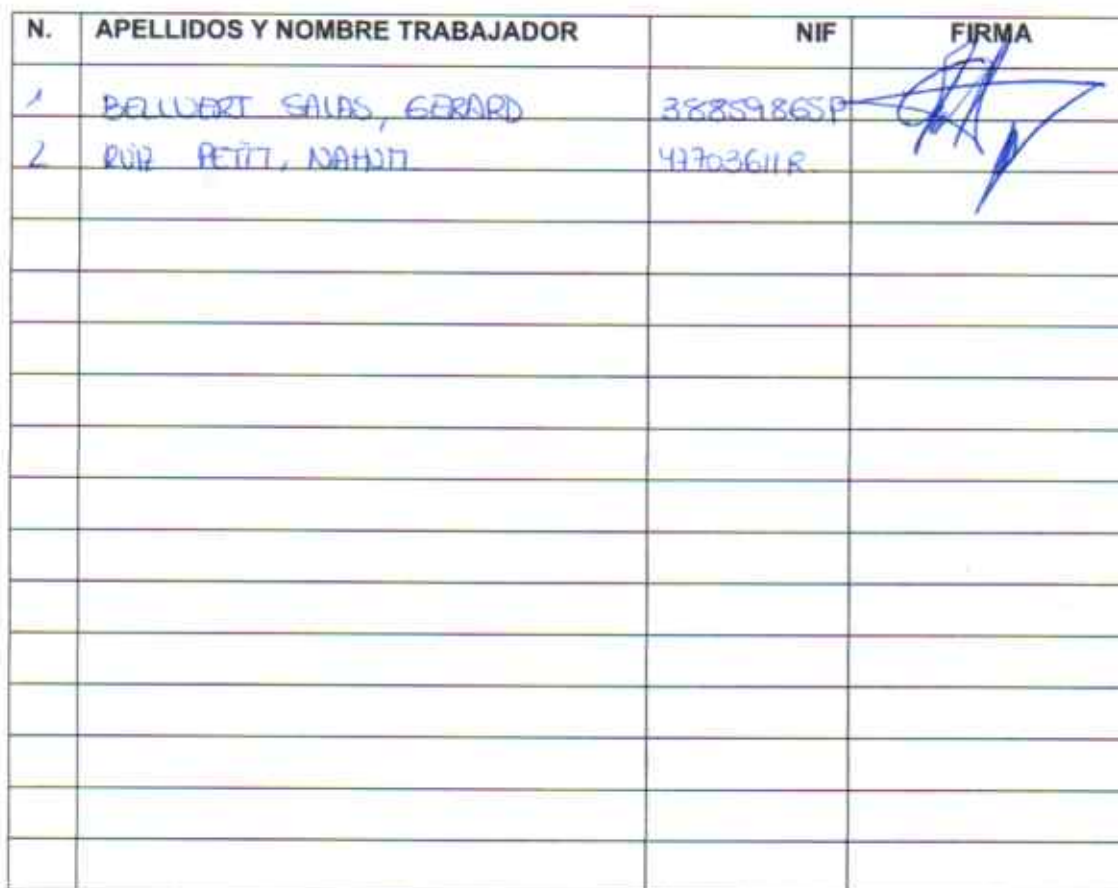 N. APELLIDOS Y NOMBRE TRABAJADOR NIF FIRMA
1 BELLVERT SALAS, GERARD 38859865P
2 RUIZ PETIT, 47703611R